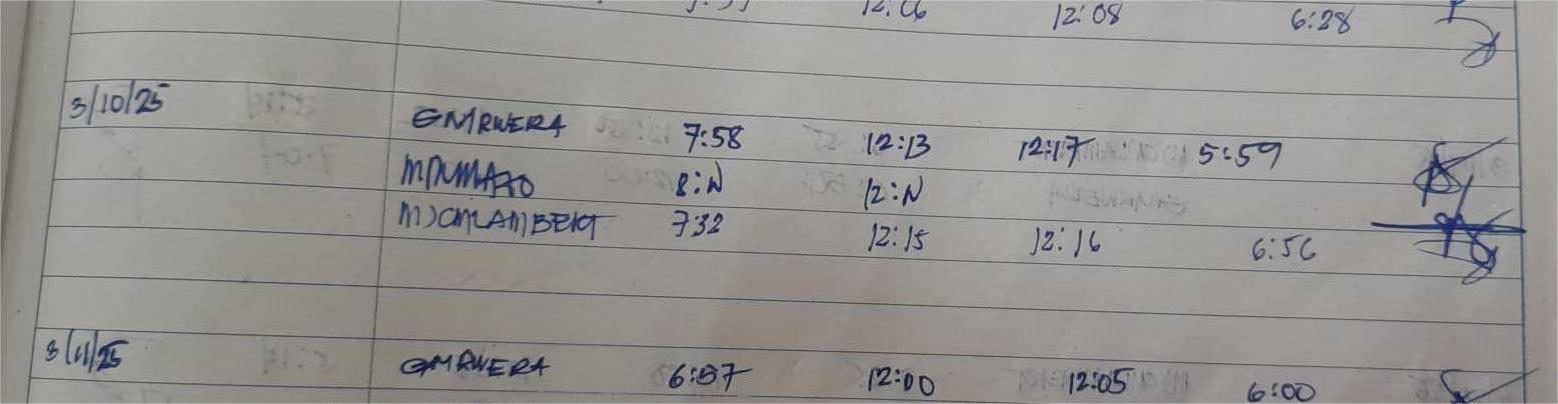 12:06 12:08 6:28
3/10/25 GMRWERA 7:58 12:13 12:17 5:59
8:N 12:N
MJCMLAMBERT 732 12:15 12:16 6:56
3/11/25 GMRWERA 6:57 12:00 12:05 6:00